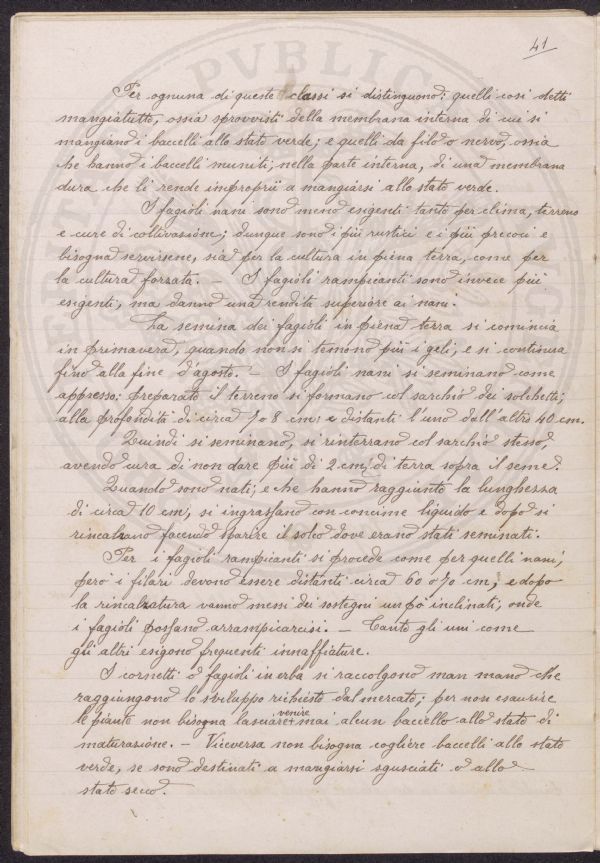 41
Per ognuna di queste classi si distinguono: quelli così detti
mangiatutto, ossia sprovvisti della membrana interna di cui si
mangiano i baccelli allo stato verde; e quelli da filo o nervo, ossia
che hanno i baccelli muniti, nella parte interna, di una membrana
dura che li rende improprii a mangiarsi allo stato verde.
I fagioli nani sono meno esigenti tanto per clima, terreno
e cure di coltivazione; dunque sono i più rustici e i più precoci e
bisogna servirsene, sia per la cultura in piena terra, come per
la cultura forzata. — I fagioli rampicanti sono invece più
esigenti, ma danno una rendita superiore ai nani.
La semina dei fagioli in piena terra si comincia
in primavera, quando non si temono più i geli, e si continua
fino alla fine d'agosto. — I fagioli nani si seminano come
appresso: preparato il terreno si formano col sarchio dei solchetti,
alla profondità di circa 7 o 8 cm. e distanti l'uno dall'altro 40 cm.
Quindi si seminano, si rinterrano col sarchio stesso,
avendo cura di non dare più di 2 cm, di terra sopra il seme.
Quando sono nati, e che hanno raggiunto la lunghezza
di circa 10 cm, si ingrassano con concime liquido e dopo si
rincalzano facendo sparire il solco dove erano stati seminati.
Per i fagioli rampicanti si procede come per quelli nani,
però i filari devono essere distanti circa 60 o 70 cm, e dopo
la rincalzatura vanno messi dei sostegni un pò inclinati, onde
i fagioli possano arrampicarcisi. — Tanto gli uni come
gli altri esigono frequenti innaffiature.
I cornetti o fagioli in erba si raccolgono man mano che
raggiungono lo sviluppo richiesto dal mercato; per non esaurire
le piante non bisogna lasciare venire mai alcun baccello allo stato di
maturazione. — Viceversa non bisogna cogliere baccelli allo stato
verde, se sono destinati a mangiarsi sgusciati o allo
stato secco.